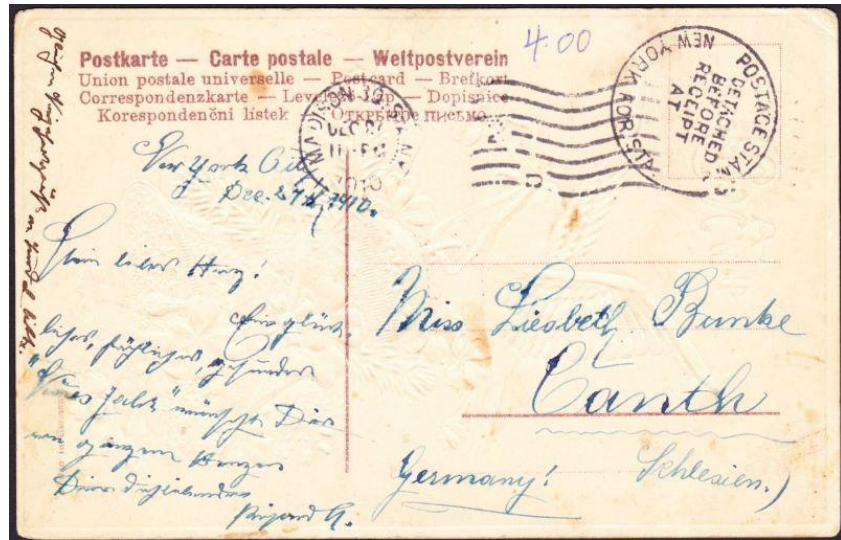 Postkarte — Carte postale — Weltpostverein
Union postale universelle — Postcard — Brefkort
Correspondenzkarte — Levelező-Lap — Dopisnice
Korespondenční lístek — Открытое письмо
4.00
MADISON SQ. STA. N.Y.
DEC 27
1910
NEW YORK FOR'N STA.
POSTAGE STAMP
DETACHED
BEFORE
RECEIPT
AT
New York City
Dec. 27th 1910.
Mein liebes Herz!
Ein glück-
liches, fröhliches, gesundes
"Neues Jahr" wünscht Dir
von ganzem Herzen
Dein Dich liebender
Richard
Miss Liesbeth Bunke
Canth
Germany!
Schlesien.)